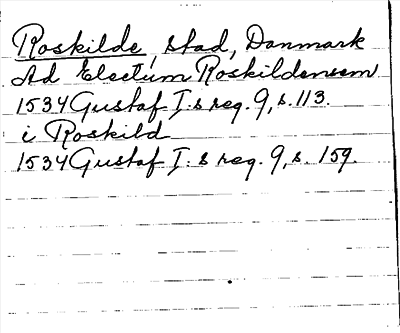 Roskilde, stad, Danmark
Ad Electum Roskildensem
1534 Gustaf I:s reg. 9, s. 113.
i Roskild
1534 Gustaf I:s reg. 9, s. 159.